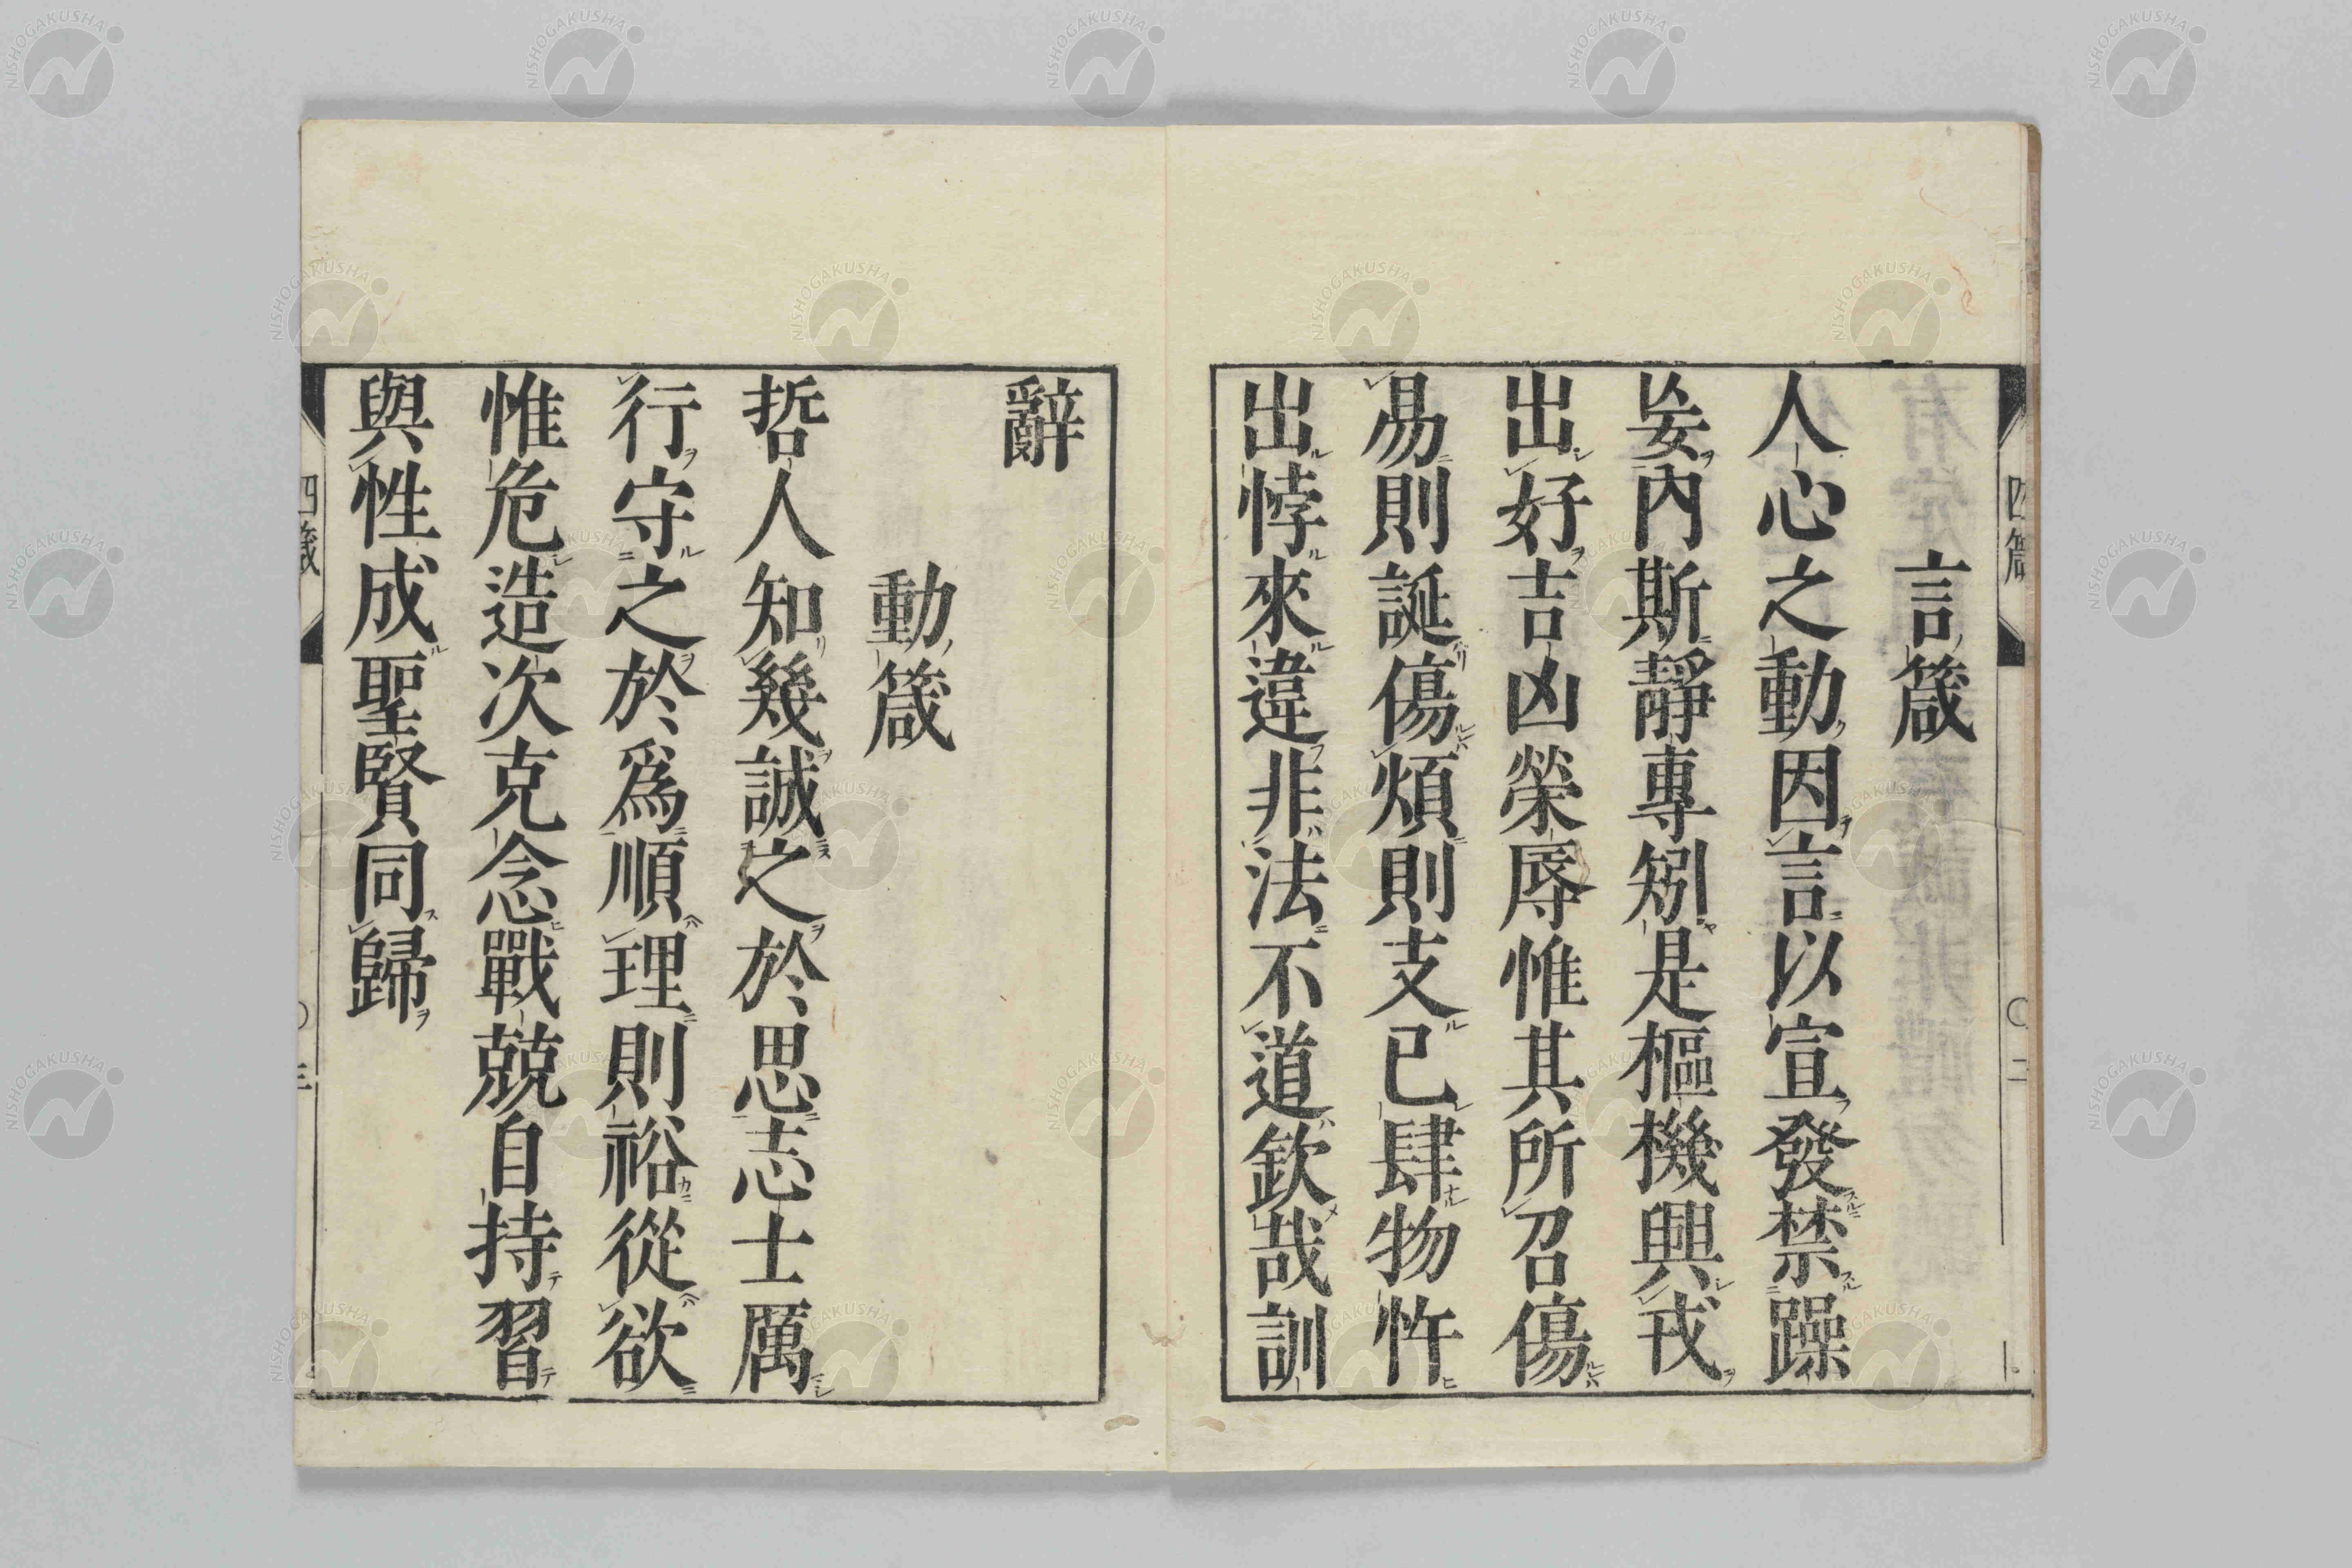 言箴
人心之動因言以宣發禁躁
妄內斯靜專矧是樞機興戎
出好吉凶榮辱惟其所召傷
易則誕傷煩則支已肆物忤
出悖來違非法不道欽哉訓
辭
動箴
哲人知幾誠之於思志士厲
行守之於爲順理則裕從欲
惟危造次克念戰兢自持習
與性成聖賢同歸
四箴
〇二
四箴
〇三
NISHOGAKUSHA